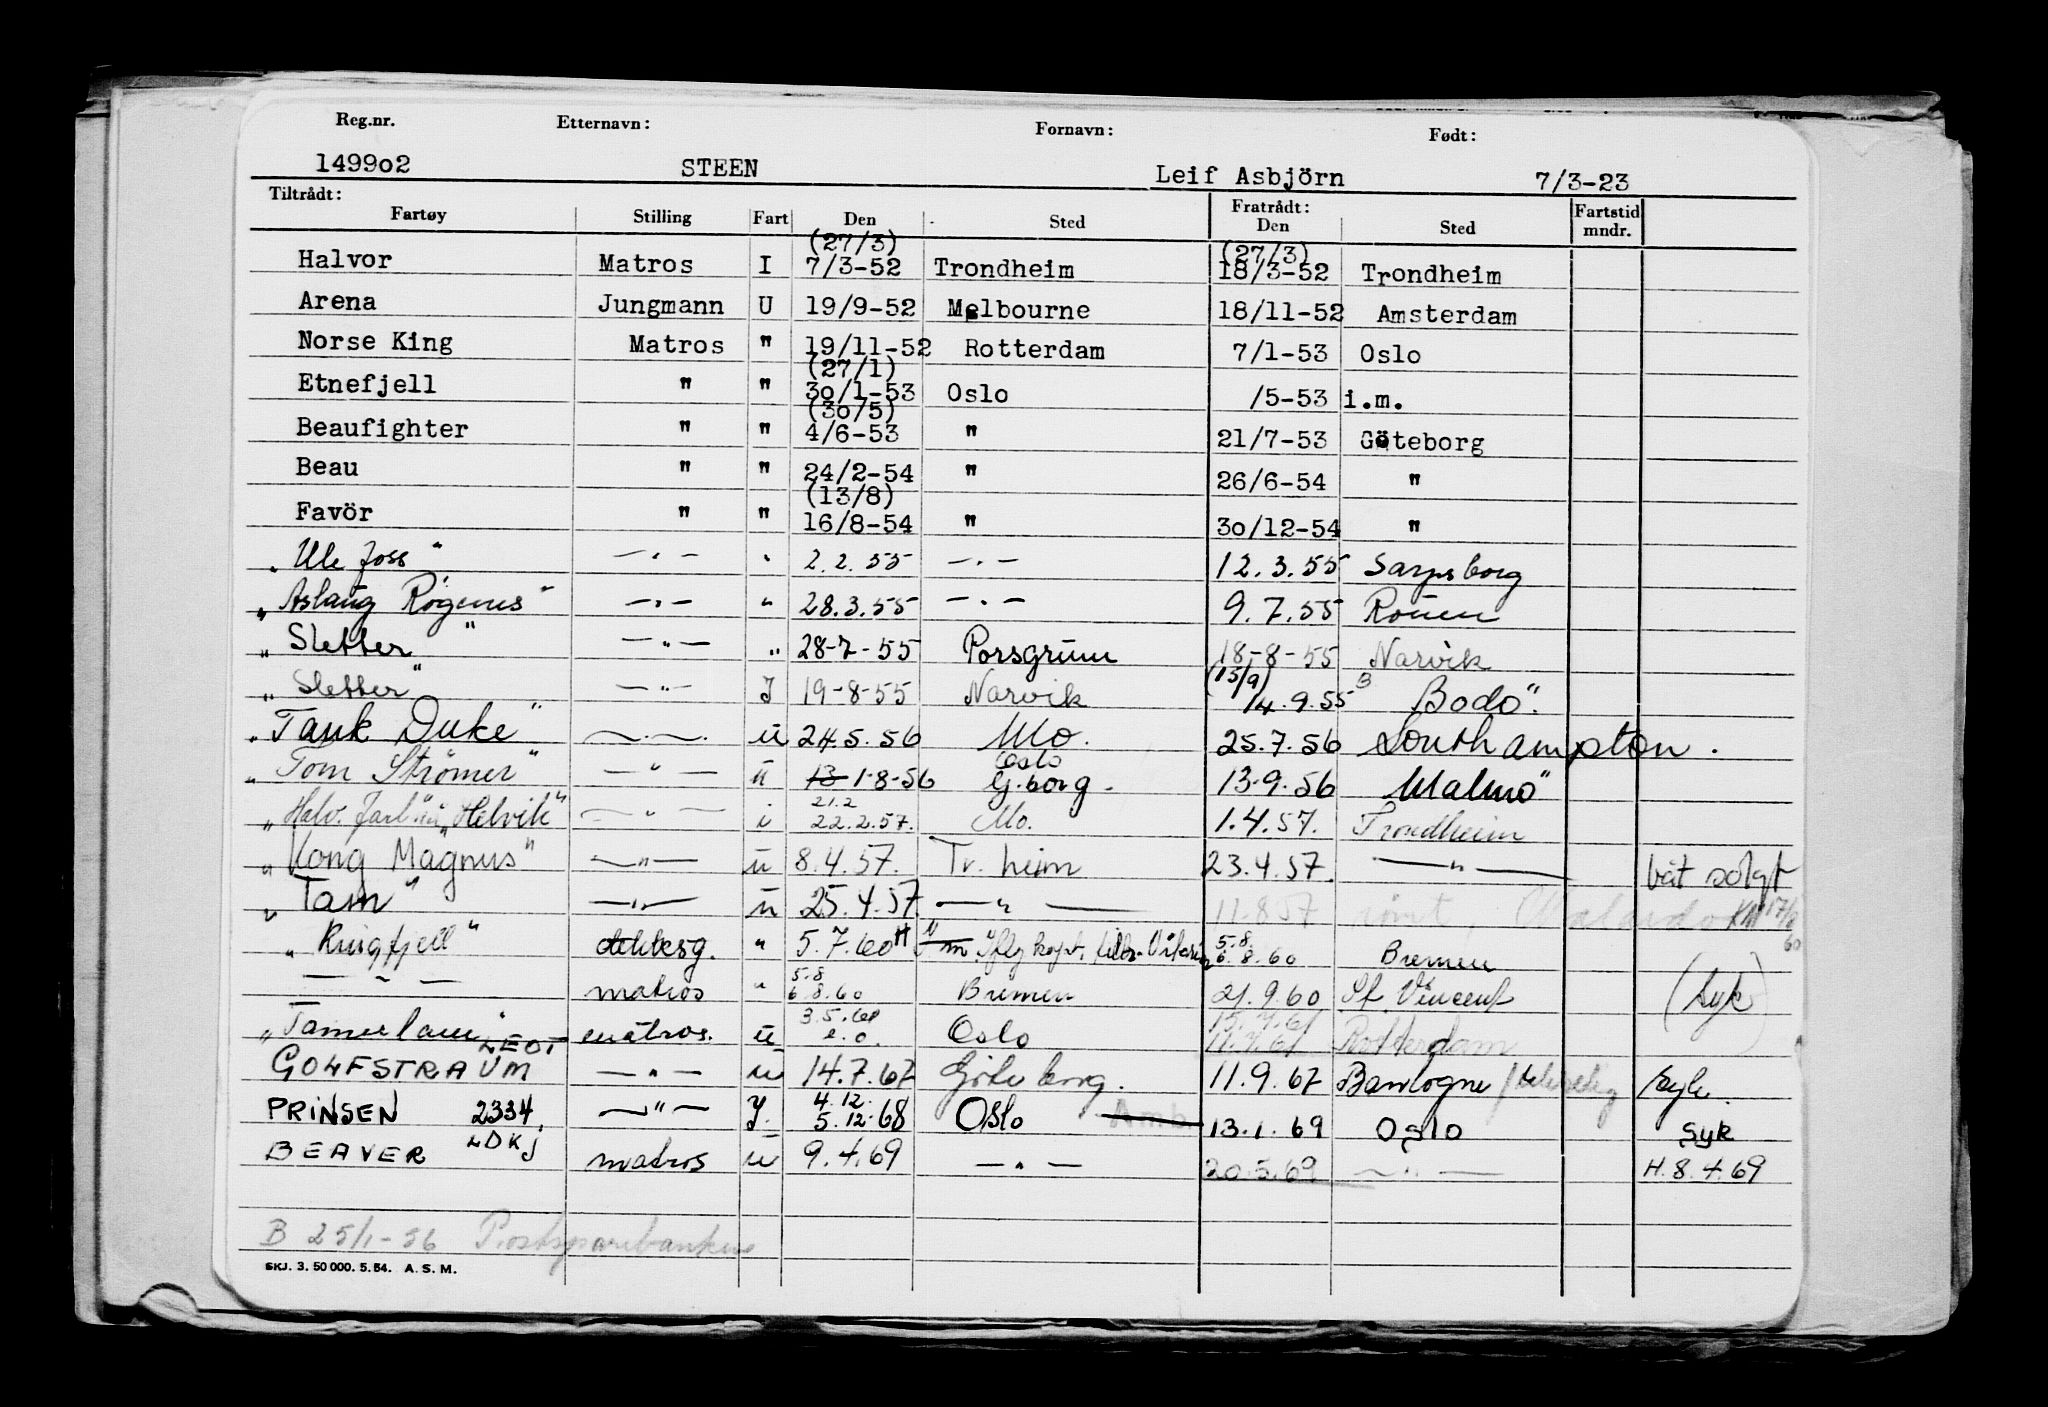 Reg.nr. Etternavn: Fornavn: Født:
149902 STEEN Leif Asbjörn 7/3-23
Tiltrådt: Fratrådt:
Fartøy Stilling Fart Den Sted Den Sted Fartstid mndr.
(27/3) (27/3)
Halvor Matros I 7/3-52 Trondheim 18/3-52 Trondheim
Arena Jungmann U 19/9-52 Melbourne 18/11-52 Amsterdam
Norse King Matros " 19/11-52 Rotterdam 7/1-53 Oslo
(27/1)
Etnefjell " " 30/1-53 Oslo /5-53 i.m.
(30/5)
Beaufighter " " 4/6-53 " 21/7-53 Göteborg
Beau " " 24/2-54 " 26/6-54 "
(13/8)
Favör " " 16/8-54 " 30/12-54 "
"Ule foss" — " — " 2.2.55 — " — 12.3.55 Sarpsborg
"Aslaug Rogenæs" — " — " 28.3.55 — " — 9.7.55 Rouen
"Sletter" — " — " 28-7-55 Porsgrunn 18-8-55 Narvik
(13/9)
"Sletter" — " — I 19-8-55 Narvik 14.9.55 Bodø
"Tank Duke" — " — u 24.5.56 Mo. 25.7.56 Southampton.
Oslo
"Tom Strömer" — " — u 13 1-8-56 G.borg. 13.9.56 Malmö
21.2
"Halv. Jarl" "Helvik" — " — i 22.2.57. Mo. 1.4.57. Trondheim
"Kong Magnus" — " — u 8.4.57. Tr.heim 23.4.57. — " — båt solgt
"Tam" — " — u 25.4.57. — " — 11.8.57 rømt KM 17/8 60
5.8
"Ringfjell" dekksg. " 5.7.60 H 6.8.60 Bremen
5.8
— " — matros " 6.8.60 Bremen 21.9.60 St Vincent (Syk)
3.5.61 15.7.61
"Tamerlane" matros. u Oslo 11.7.61 Rotterdam
LEOT
GOLFSTRAUM — " — u 14.7.67 Göteborg. 11.9.67 Boulogne syk.
4.12.
PRINSEN 2334. — " — I. 5.12.68 Oslo 13.1.69 Oslo Syk
LDKJ
BEAVER matros u 9.4.69 — " — 20.5.69 — " — H. 8.4.69
B 25/1-56 Postsparebanken
SKJ. 3. 50 000. 5. 54. A. S. M.